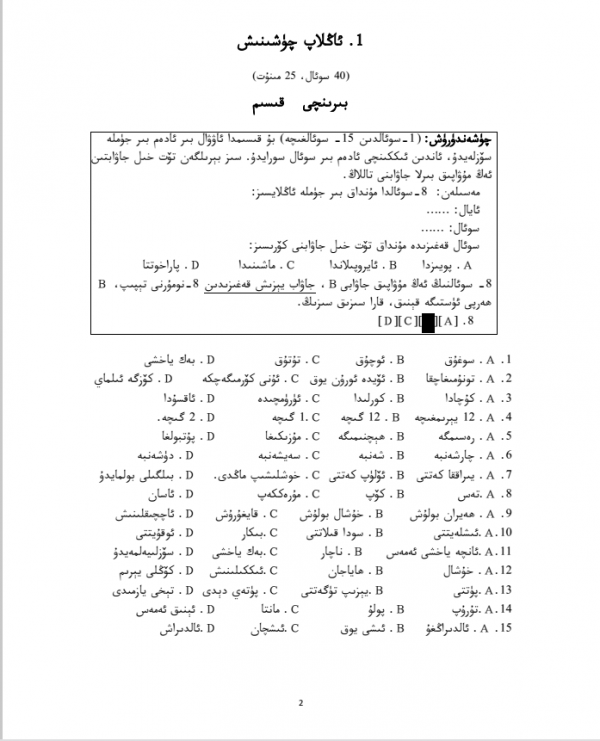 1. ئاڭلاپ چۈشىنىش
(40 سوئال، 25 مىنۇت)
بىرىنچى قىسىم
چۈشەندۈرۈش: (1-سوئالدىن 15- سوئالغىچە) بۇ قىسىمدا ئاۋۋال بىر ئادەم بىر جۈملە
سۆزلەيدۇ، ئاندىن ئىككىنچى ئادەم بىر سوئال سورايدۇ. سىز بېرىلگەن تۆت خىل جاۋابتىن
ئەڭ مۇۋاپىق بىرلا جاۋابنى تاللاڭ.
مەسىلەن: 8-سوئالدا مۇنداق بىر جۈملە ئاڭلايسىز:
ئايال: ......
سوئال: ......
سوئال قەغىزىدە مۇنداق تۆت خىل جاۋابنى كۆرىسىز:
A . پويىزدا B . ئايروپىلاندا C . ماشىنىدا D . پاراخوتتا
8- سوئالنىڭ ئەڭ مۇۋاپىق جاۋابى B ، جاۋاب يېزىش قەغىزىدىن 8-نومۇرنى تېپىپ، B
ھەرپى ئۈستىگە قېنىق، قارا سىزىق سىزىڭ.
8. [A][ ][C][D]
1. A . سوغۇق B . ئوچۇق C . تۇتۇق D . بەك ياخشى
2. A . تونۇمىغاچقا B . ئۆيدە ئورۇن يوق C . ئۇنى كۆرمىگەچكە D . كۆزگە ئىلماي
3. A . كۇچادا B . كورلىدا C . ئۈرۈمچىدە D . ئاقسۇدا
4. A . 12 يېرىمغىچە B . 12 گىچە C .1 گىچە D . 2 گىچە.
5. A . رەسىمگە B . ھېچنىمىگە C . مۇزىكىغا D . پۇتبولغا
6. A . چارشەنبە B . شەنبە C . سەيشەنبە D . دۈشەنبە
7. A . يىراققا كەتتى B . ئۆلۈپ كەتتى C . خوشلىشىپ ماڭدى. D . بىلگىلى بولمايدۇ
8. A .تەس B . كۆپ C . مۇرەككەپ D . ئاسان
9. A . ھەيران بولۇش B . خۇشال بولۇش C . قايغۇرۇش D . ئاچچىقلىنىش
10. A .ئىشلەيتتى B . سودا قىلاتتى C .بىكار D . ئوقۇيتتى
11. A .ئانچە ياخشى ئەمەس B . ناچار C .بەك ياخشى D . سۆزلىيەلمەيدۇ
12. A . خۇشال B . ھاياجان C .ئىككىلىنىش D . كۆڭلى يېرىم
13. A . پۈتتى B .يېزىپ تۈگەتتى C . پۈتەي دېدى D . تېخى يازمىدى
14. A . تۇرۇپ B . پولۇ C . مانتا D . ئېنىق ئەمەس
15. A . ئالدىراڭغۇ B . ئىشى يوق C .ئىشچان D .ئالدىراش
2